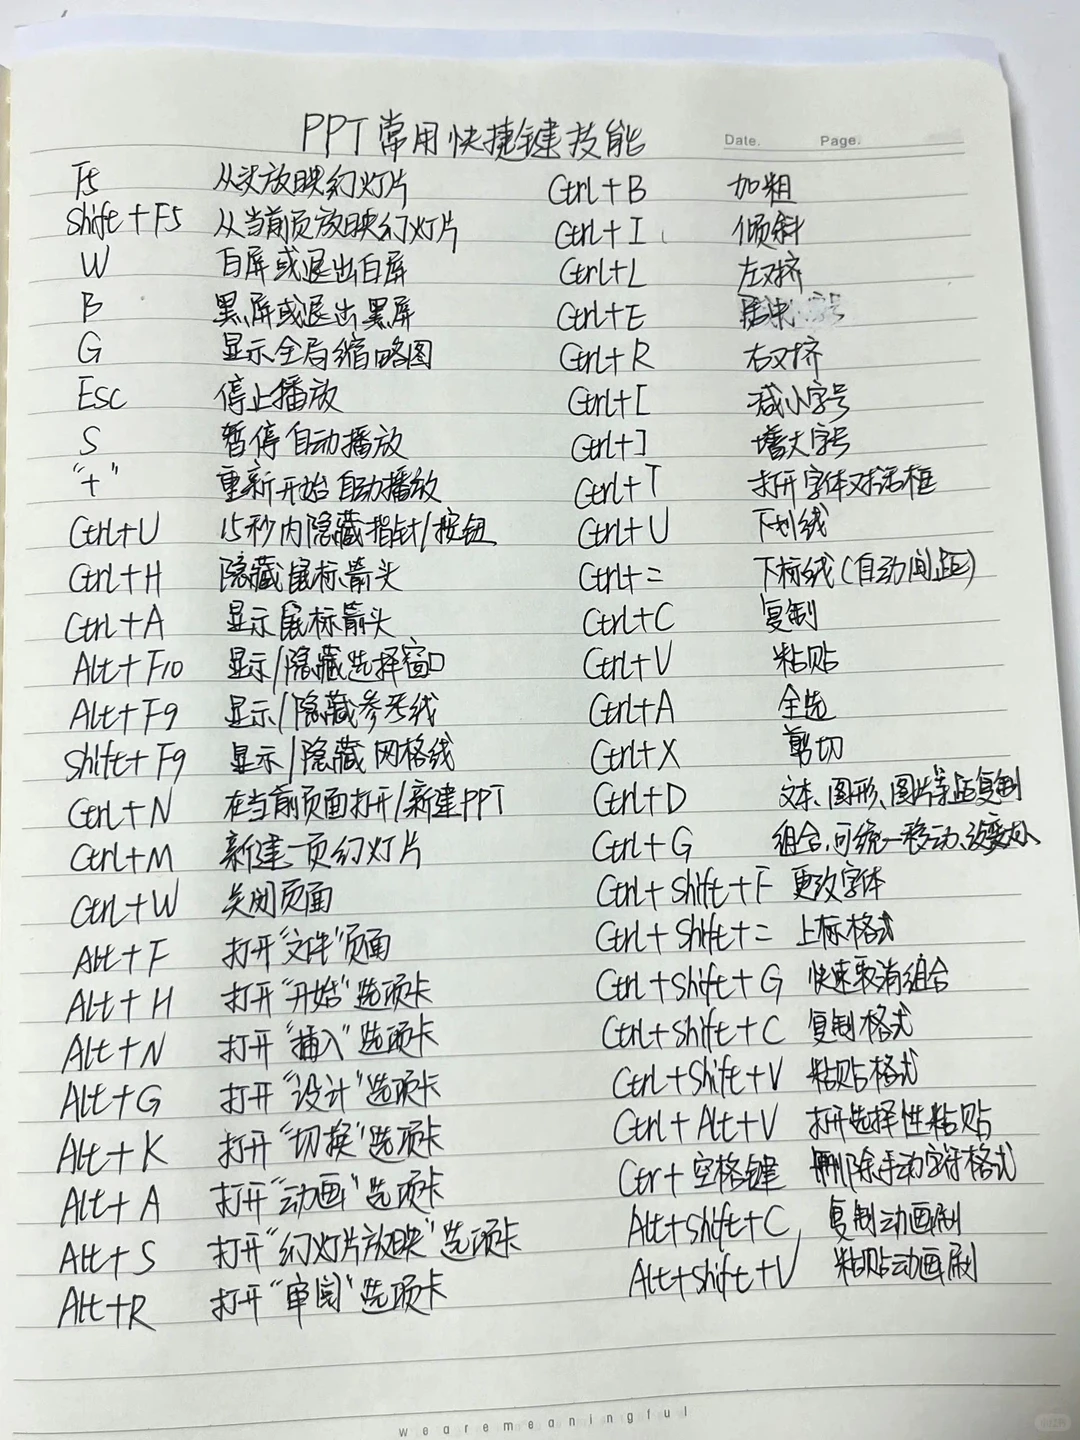 PPT常用快捷键技能
Date. Page.
F5 从头放映幻灯片 Ctrl+B 加粗
Shift+F5 从当前页放映幻灯片 Ctrl+I 倾斜
W 白屏或退出白屏 Ctrl+L 左对挤
B 黑屏或退出黑屏 Ctrl+E
G 显示全局缩略图 Ctrl+R 右对挤
Esc 停止播放 Ctrl+[ 减小字号
S 暂停自动播放 Ctrl+] 增大字号
“+” 重新开始自动播放 Ctrl+T 打开字体对话框
Ctrl+U 15秒内隐藏指针/按钮 Ctrl+U 下划线
Ctrl+H 隐藏鼠标箭头 Ctrl+= 下标线(自动间距)
Ctrl+A 显示鼠标箭头 Ctrl+C 复制
Alt+F10 显示/隐藏选择窗口 Ctrl+V 粘贴
Alt+F9 显示/隐藏参考线 Ctrl+A 全选
Shift+F9 显示/隐藏网格线 Ctrl+X 剪切
Ctrl+N 在当前页面打开/新建PPT Ctrl+D 文本、图形、图片等距复制
Ctrl+M 新建一页幻灯片 Ctrl+G 组合,可统一移动、改变大小
Ctrl+W 关闭页面 Ctrl+Shift+F 更改字体
Alt+F 打开“文件”页面 Ctrl+Shift+= 上标格式
Alt+H 打开“开始”选项卡 Ctrl+Shift+G 快速取消组合
Alt+N 打开“插入”选项卡 Ctrl+Shift+C 复制格式
Alt+G 打开“设计”选项卡 Ctrl+Shift+V 粘贴格式
Alt+K 打开“切换”选项卡 Ctrl+Alt+V 打开选择性粘贴
Alt+A 打开“动画”选项卡 Ctr+空格键 删除手动字符格式
Alt+S 打开“幻灯片放映”选项卡 Alt+Shift+C 复制动画刷
Alt+R 打开“审阅”选项卡 Alt+Shift+V 粘贴动画刷
wearemeaningful